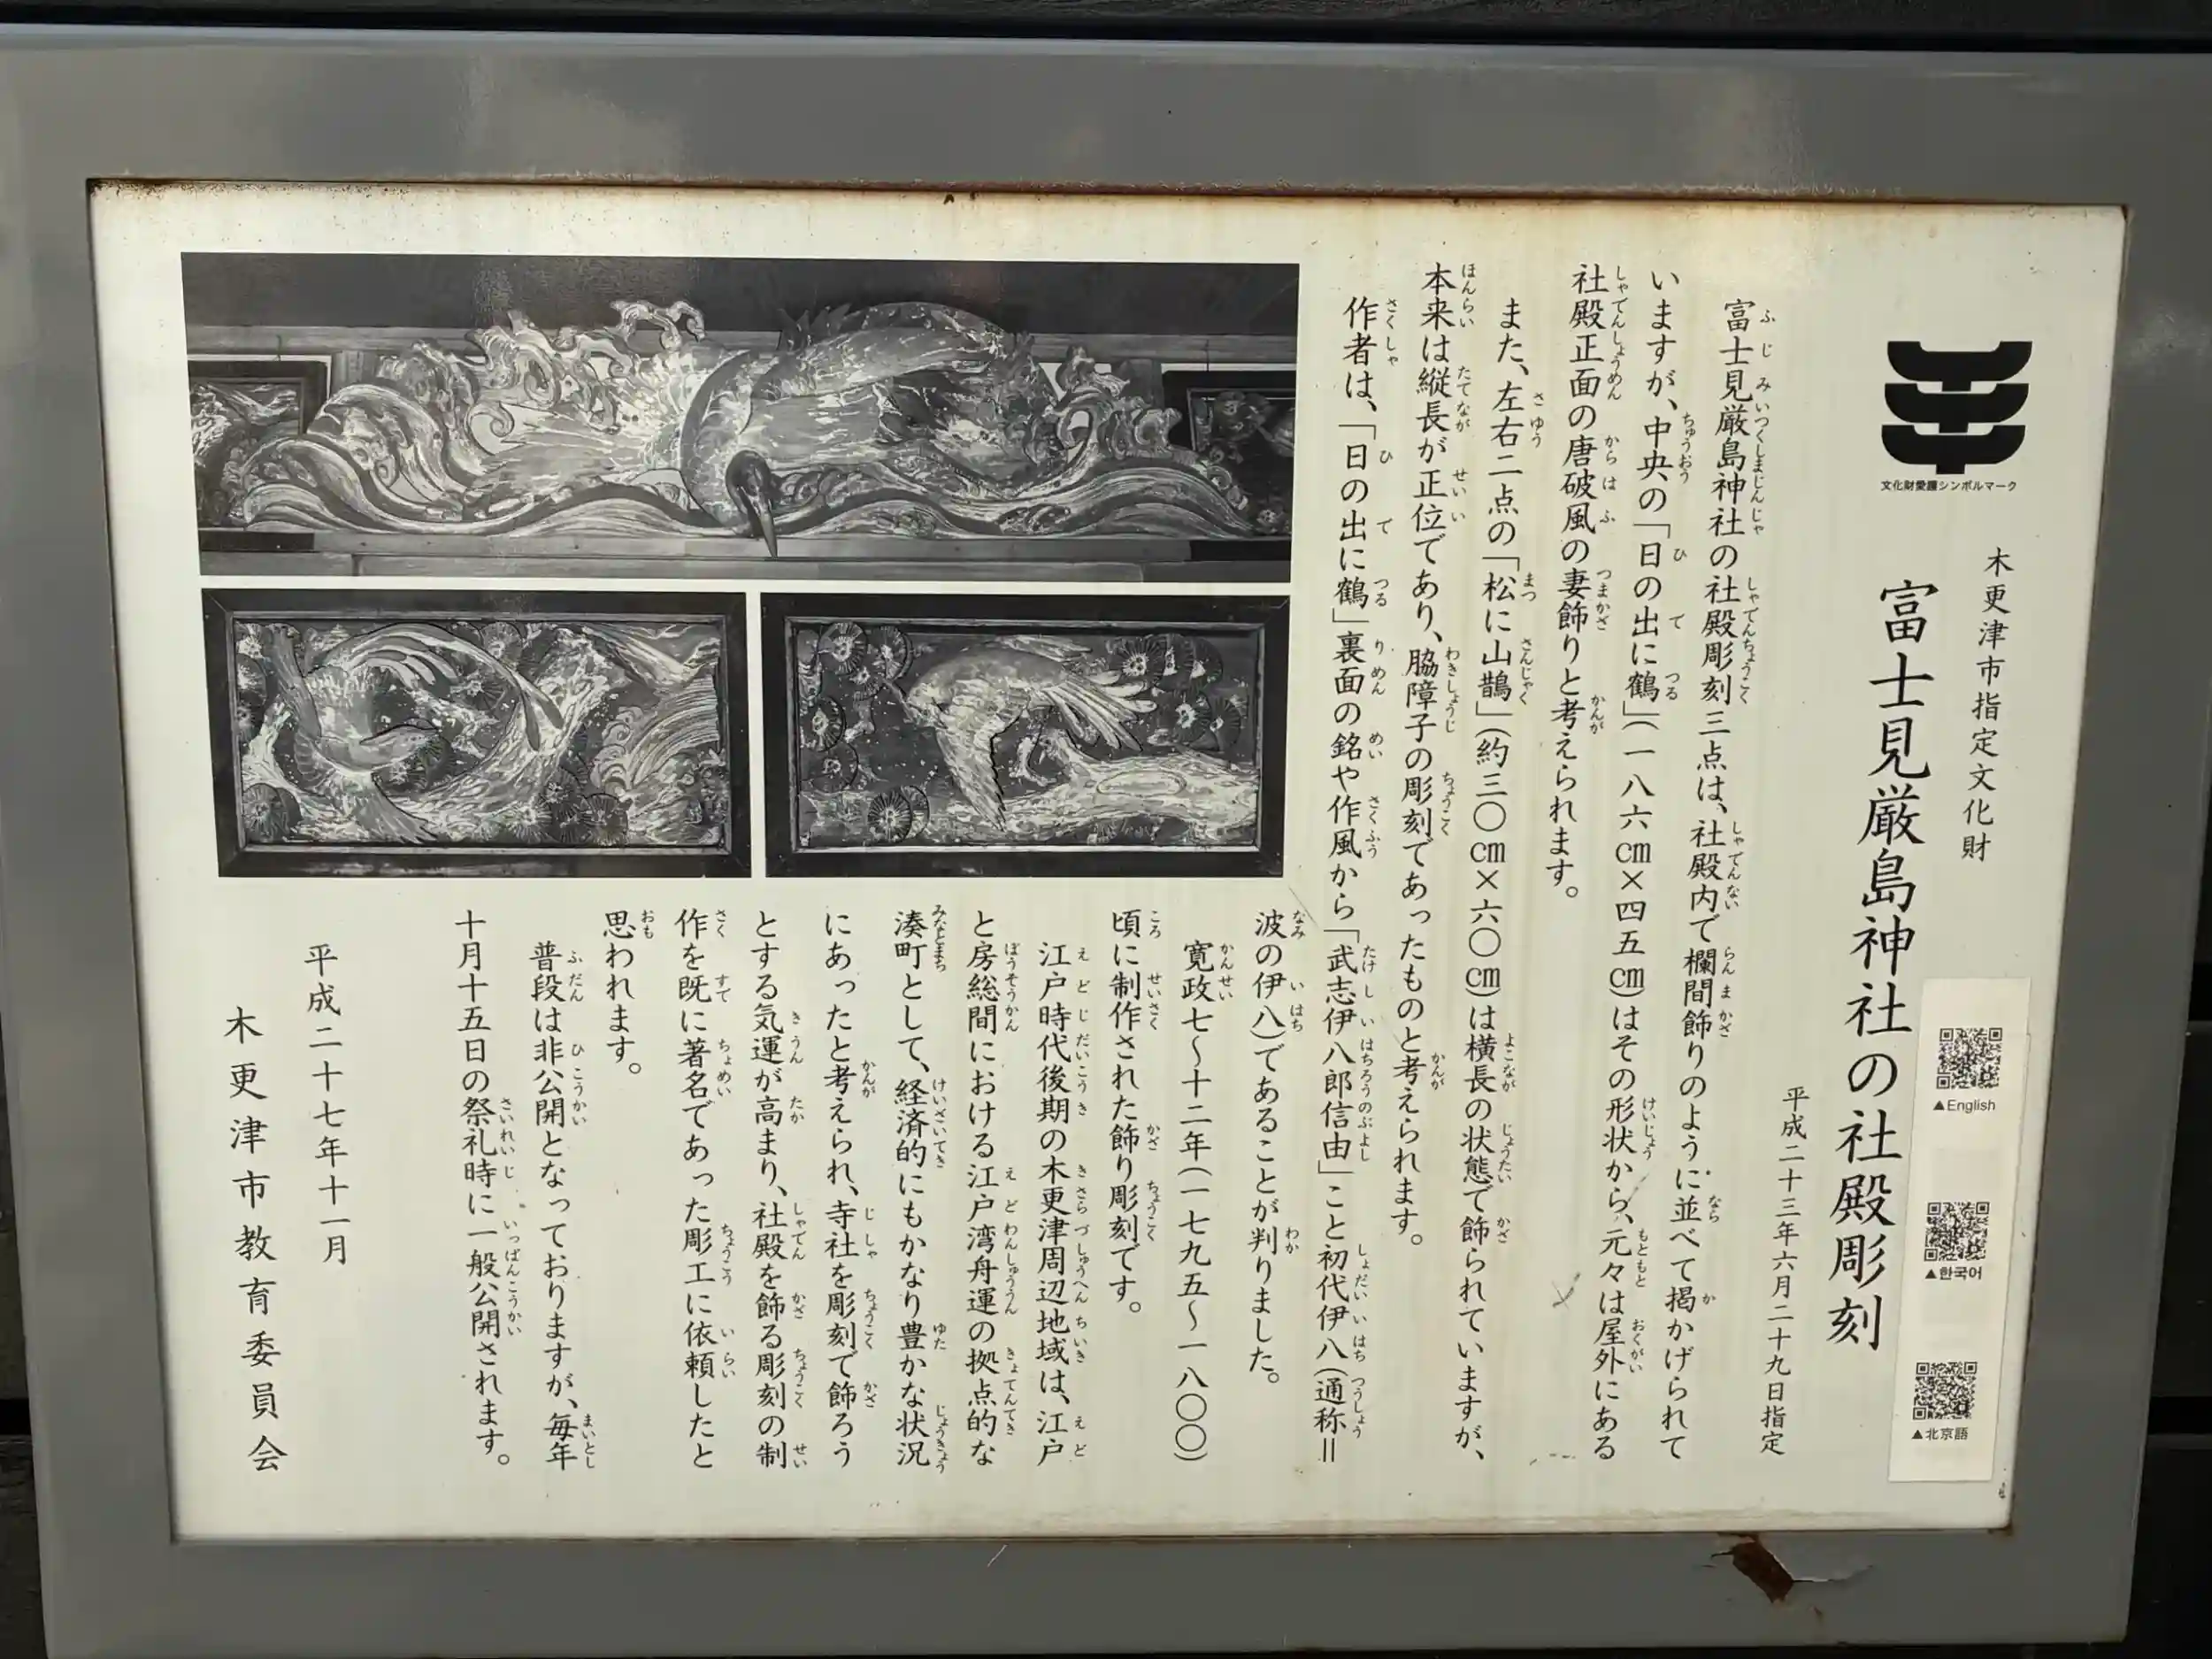 木更津市指定文化財
富士見厳島神社の社殿彫刻
平成二十三年六月二十九日指定
文化財愛護シンボルマーク
富士見厳島神社の社殿彫刻三点は、社殿内で欄間飾りのように並べて掲かげられて
いますが、中央の「日の出に鶴」(一八六㎝×四五㎝)はその形状から、元々は屋外にある
社殿正面の唐破風の妻飾りと考えられます。
また、左右二点の「松に山鵲」(約三〇㎝×六〇㎝)は横長の状態で飾られていますが、
本来は縦長が正位であり、脇障子の彫刻であったものと考えられます。
作者は、「日の出に鶴」裏面の銘や作風から「武志伊八郎信由」こと初代伊八(通称=
波の伊八)であることが判りました。
寛政七〜十二年(一七九五〜一八〇〇)
頃に制作された飾り彫刻です。
江戸時代後期の木更津周辺地域は、江戸
と房総間における江戸湾舟運の拠点的な
湊町として、経済的にもかなり豊かな状況
にあったと考えられ、寺社を彫刻で飾ろう
とする気運が高まり、社殿を飾る彫刻の制
作を既に著名であった彫工に依頼したと
思われます。
普段は非公開となっておりますが、毎年
十月十五日の祭礼時に一般公開されます。
平成二十七年十一月
木更津市教育委員会
▲English
▲한국어
▲北京語